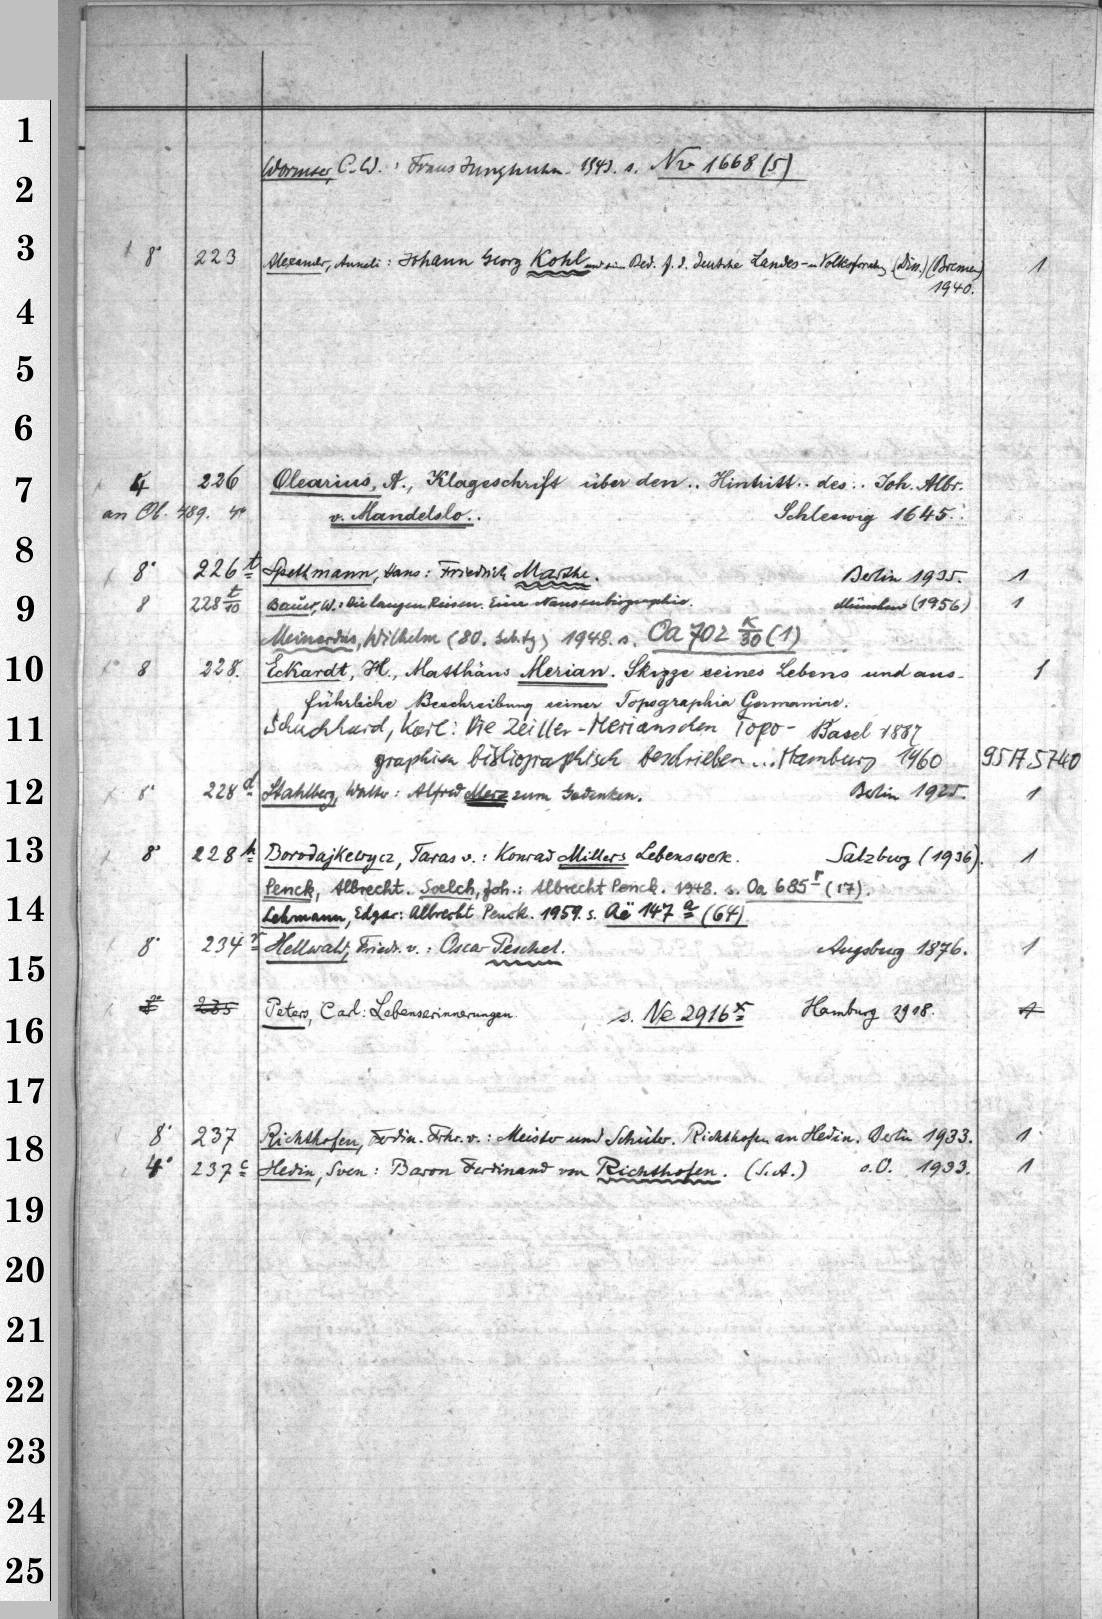 1
Wormser, C. W. : Frans Junghuhn. 1943. s. Nv 1668 (5)
2
3
8° 223 Alexander, Anneli: Johann Georg Kohl und seine Bed. f. d. deutsche Landes- u. Volksforschung (Diss.) (Bremen) 1
1940.
4
5
6
7
4 226 Olearius, A., Klageschrift über den .. Hintritt .. des .. Joh. Albr.
an Ob. 489. 4° v. Mandelslo.. Schleswig 1645.
8
8° 226 t Spethmann, Hans: Friedrich Marthe. Berlin 1935. 1
9
8 228 t/10 Bauer, W.: Die langen Reisen. Eine Nansenbiographie. München (1956) 1
Meinardus, Wilhelm (80. Gebtg) 1948. s. Oa 702 K/30 (1)
10
8 228. Eckardt, H., Matthäus Merian. Skizze seines Lebens und aus- 1
führliche Beschreibung seiner Topographia Germaniae.
11
Schuchhard, Karl: Die Zeiller-Merianschen Topo- Basel 1887
graphien bibliographisch beschrieben ... Hamburg 1960 9517.5740
12
8° 228 d Stahlberg, Walter: Alfred Merz zum Gedenken. Berlin 1925. 1
13
8° 228 h Borodajkewycz, Taras v.: Konrad Millers Lebenswerk. Salzburg (1936). 1
Penck, Albrecht. Soelch, Joh.: Albrecht Penck. 1948. s. Oa 685 r (17).
14
Lehmann, Edgar: Albrecht Penck. 1959. s. Aë 147 a (64)
15
8° 234 r Hellwald, Friedr. v.: Oscar Peschel. Augsburg 1876. 1
16
8° 235 Peters, Carl: Lebenserinnerungen. s. Ne 2916 x Hamburg 1918. 1
17
18
8° 237 Richthofen, Ferdin. Frhr. v.: Meister und Schüler. Richthofen an Hedin. Berlin 1933. 1
4° 237 c Hedin, Sven: Baron Ferdinand von Richthofen. (S.A.) o.O. 1933. 1
19
20
21
22
23
24
25